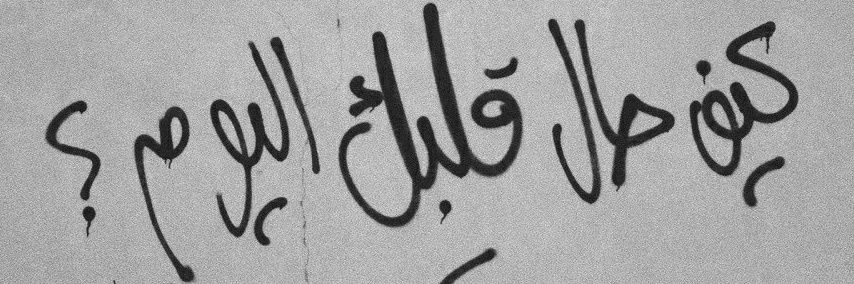 كيف حال قلبك اليوم ؟